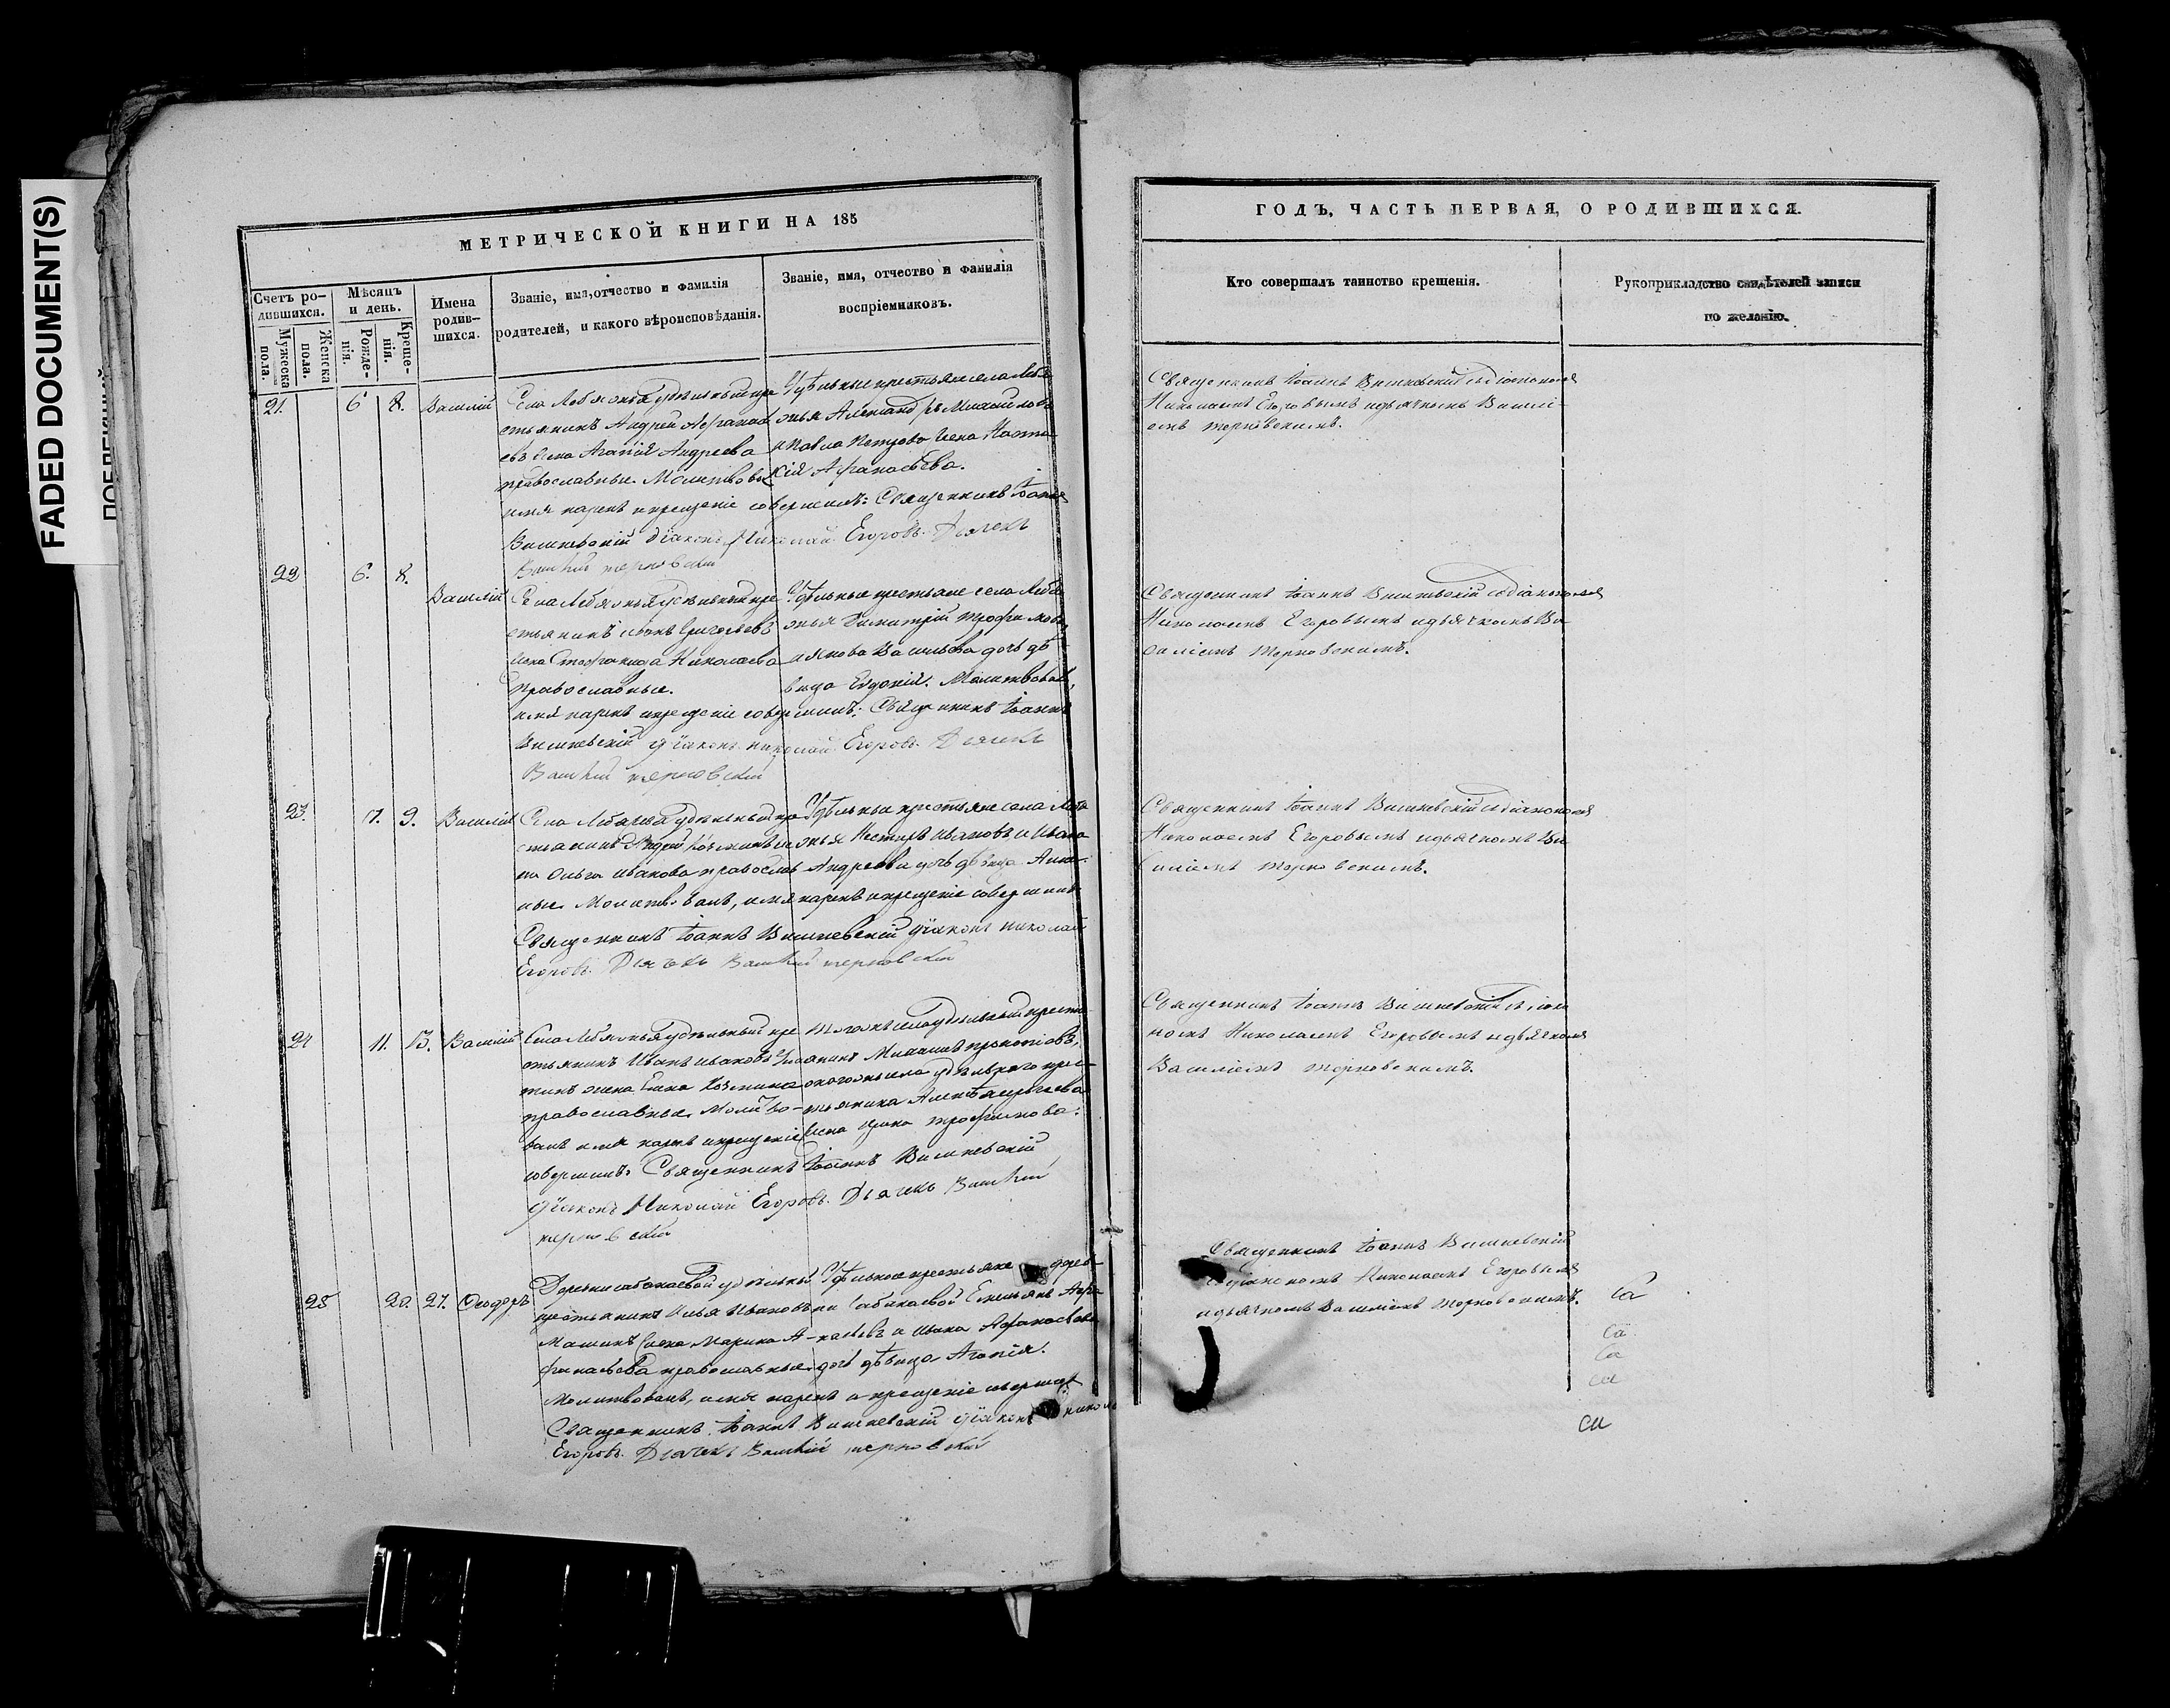 FADED DOCUMENT(S)
МЕТРИЧЕСКОЙ КНИГИ НА 185
Счетъ ро-
дившихся.
Мужеска
пола.
Женска
пола.
Мѣсяцъ
и день.
Рожде-
нія.
Креще-
нія.
Имена
родив-
шихся.
Званіе, имя,отчество и фамилія
родителей, и какого вѣроисповѣданія.
Званіе, имя, отчество и фамилія
воспріемниковъ.
21. 6 8. Василій
Села Лебяжья удѣльный кре
стьянинъ Андрей Афанась
евъ жена Агапія Андреева
православные. Молитвовалъ
имя нарекъ и крещеніе совершилъ: Священникъ Іоаннъ
Вишневскій діаконъ Николай Егоровъ. Дьячекъ
Василій терновскій
Удѣльные крестьяне села Лебя
жья Александръ Михайловъ
и Павла Петрова жена Наста
сія Афанасьева.
22 6. 8.
Василій
Села Лебяжья удѣльный кре
стьянинъ Григорьевъ
жена Стефанида Николаева
православные.
имя нарекъ крещеніе совершилъ: Священникъ Іоаннъ
Вишневскій діаконъ николай Егоровъ. Дьячекъ
Василій терновскій
Удѣльные крестьяне села Лебя
жья Димитрій Трофимовъ
Васильева дочь дѣ
вица Евдокія. Молитвовалъ,
23. 7. 9. Василій
Села Лебяжья удѣльный кре
стьянинъ Андрей Козминъ же
на Ольга иванова православ
ные. Молитвовалъ, имя нарекъ и крещеніе совершилъ
Священникъ Іоаннъ Вишневскій діаконъ николай
Егоровъ. Дьячекъ Василій терновскій
Удѣльные крестьяне села Лебя
жья Несторъ Ивановъ и Ивана
Андреева дочь дѣвица Анна.
24 11. 13. Василій
Села Лебяжья удѣльный кре
стьянинъ Иванъ ивановъ
жена Елена Козмина
православные. Молитво-
валъ имя нарекъ и крещеніе
совершилъ: Священникъ Іоаннъ Вишневскій
діаконъ Николай Егоровъ. Дьячекъ Василій
терновскій
Тогожъ села удѣльный кресть
янинъ Михаилъ прокопіовъ,
тогожъ села удѣльнаго кре-
стьянина Алексѣя
жена трофимова.
25 20. 21. Ѳеодоръ
Деревни удѣльный
крестьянинъ Илья Ивановъ
жена Марина А-
фанасьева православные.
Молитвовалъ, имя нарекъ и крещеніе совершилъ
Священникъ Іоаннъ Вишневскій діаконъ николай
Егоровъ. Дьячекъ Василій терновскій
Удѣльные крестьяне дерев
ни Емельянъ Афа
насьевъ и Ивана Афанасьева
дочь дѣвица Агапія.
ГОДЪ, ЧАСТЬ ПЕРВАЯ, О РОДИВШИХСЯ.
Кто совершалъ таинство крещенія.
Рукоприкладство свидѣтелей записи
по желанію.
Священникъ Іоаннъ Вишневскій съ діакономъ
Николаемъ Егоровымъ и дьячкомъ Василі-
емъ терновскимъ.
Священникъ Іоаннъ Вишневскій съ діакономъ
Николаемъ Егоровымъ и дьячкомъ Ва-
силіемъ терновскимъ.
Священникъ Іоаннъ Вишневскій съ діакономъ
Николаемъ Егоровымъ и дьячкомъ Ва
силіемъ терновскимъ.
Священникъ Іоаннъ Вишневскій съ діако
номъ Николаемъ Егоровымъ и дьячкомъ
Василіемъ терновскимъ.
Священникъ Іоаннъ Вишневскій
съ діакономъ Николаемъ Егоровымъ
и дьячкомъ Василіемъ терновскимъ.
Са
Са
Са
са
са